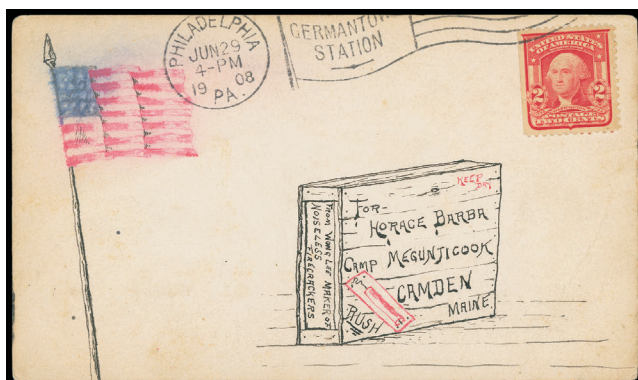 PHILADELPHIA
JUN 29
4-PM
1908
PA.
GERMANTOWN
STATION
UNITED STATES
OF AMERICA
2 2
POSTAGE
TWO CENTS
KEEP
DRY
FOR-
HORACE BARBA
CAMP MEGUNTICOOK
CAMDEN
MAINE.
RUSH
FROM WONG LEE MAKER OF
NOISELESS
FIRECRACKERS